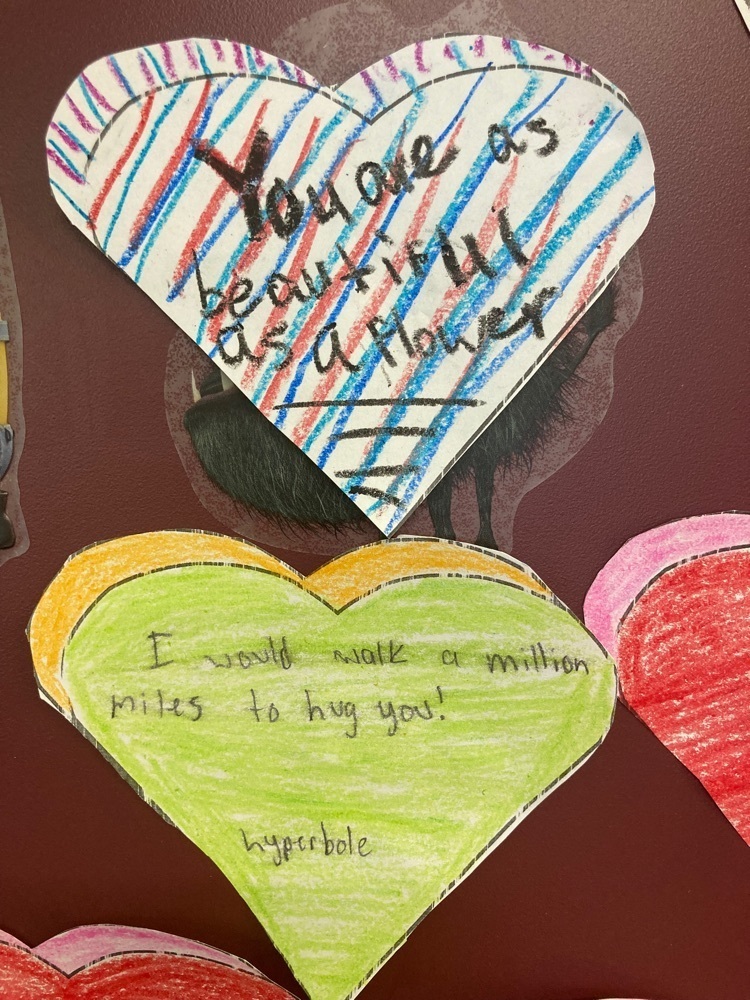 You are as
beautiful
as a flower
I would walk a million
miles to hug you!
hyperbole